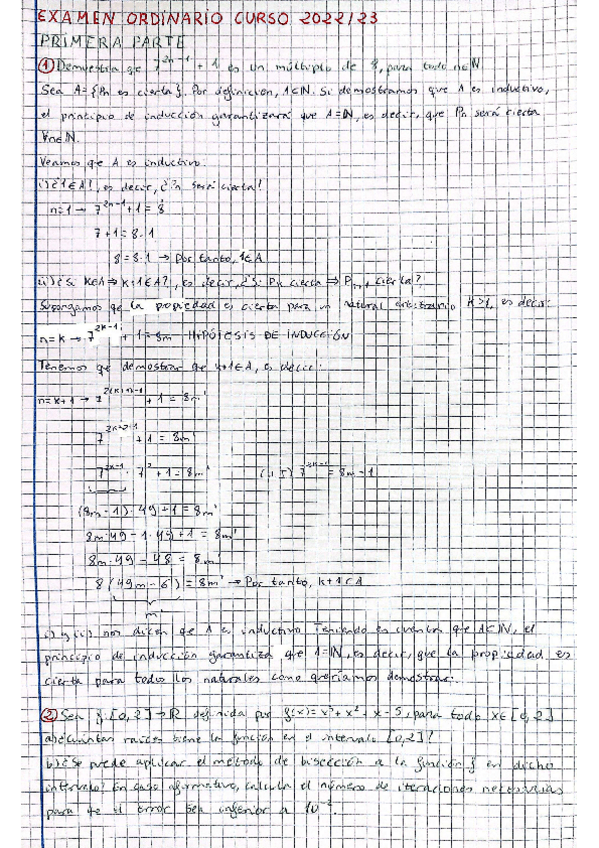 EXAMEN ORDINARIO CURSO 2022/23
PRIMERA PARTE
① Demuestra que 7^{2n-1} + 1 es un múltiplo de 8, para todo n∈ℕ
Sea A={Pn es cierta}. Por definición, A⊂ℕ. Si demostramos que A es inductivo,
el principio de inducción garantizará que A=ℕ, es decir, que Pn será cierta
∀n∈ℕ.
Veamos que A es inductivo:
i) ¿1∈A?, es decir, ¿P₁ será cierta?
n=1 → 7^{2n-1}+1 = 8
7+1 = 8·1
8 = 8·1 → Por tanto, 1∈A
ii) ¿Si K∈A ⇒ K+1∈A?, es decir, ¿Si Pn cierta ⇒ Pn+1 cierta?
Supongamos que la propiedad es cierta para un natural arbitrario K>1, es decir:
n=K → 7^{2K-1} + 1 = 8m HIPÓTESIS DE INDUCCIÓN
Tenemos que demostrar que K+1∈A, es decir:
n=K+1 → 7^{2(K+1)-1} + 1 = 8m'
7^{2K+2-1} + 1 = 8m'
7^{2K-1} · 7² + 1 = 8m' 7^{2K-1} = 8m-1
(8m-1)·49+1 = 8m'
8m·49 - 1·49 + 1 = 8m'
8m·49 - 48 = 8m'
8(49m-6) = 8m' → Por tanto, K+1∈A
m'
i) y ii) nos dicen que A es inductivo. Teniendo en cuenta que A⊂ℕ, el
principio de inducción garantiza que A=ℕ, es decir, que la propiedad es
cierta para todos los naturales como queríamos demostrar.
② Sea f:[0,2]→ℝ definida por f(x)=x³+x²+x-5, para todo x∈[0,2]
a) ¿Cuántas raíces tiene la función en el intervalo [0,2]?
b) ¿Se puede aplicar el método de bisección a la función f en dicho
intervalo? En caso afirmativo, calcula el número de iteraciones necesarias
para que el error sea inferior a 10^{-2}.